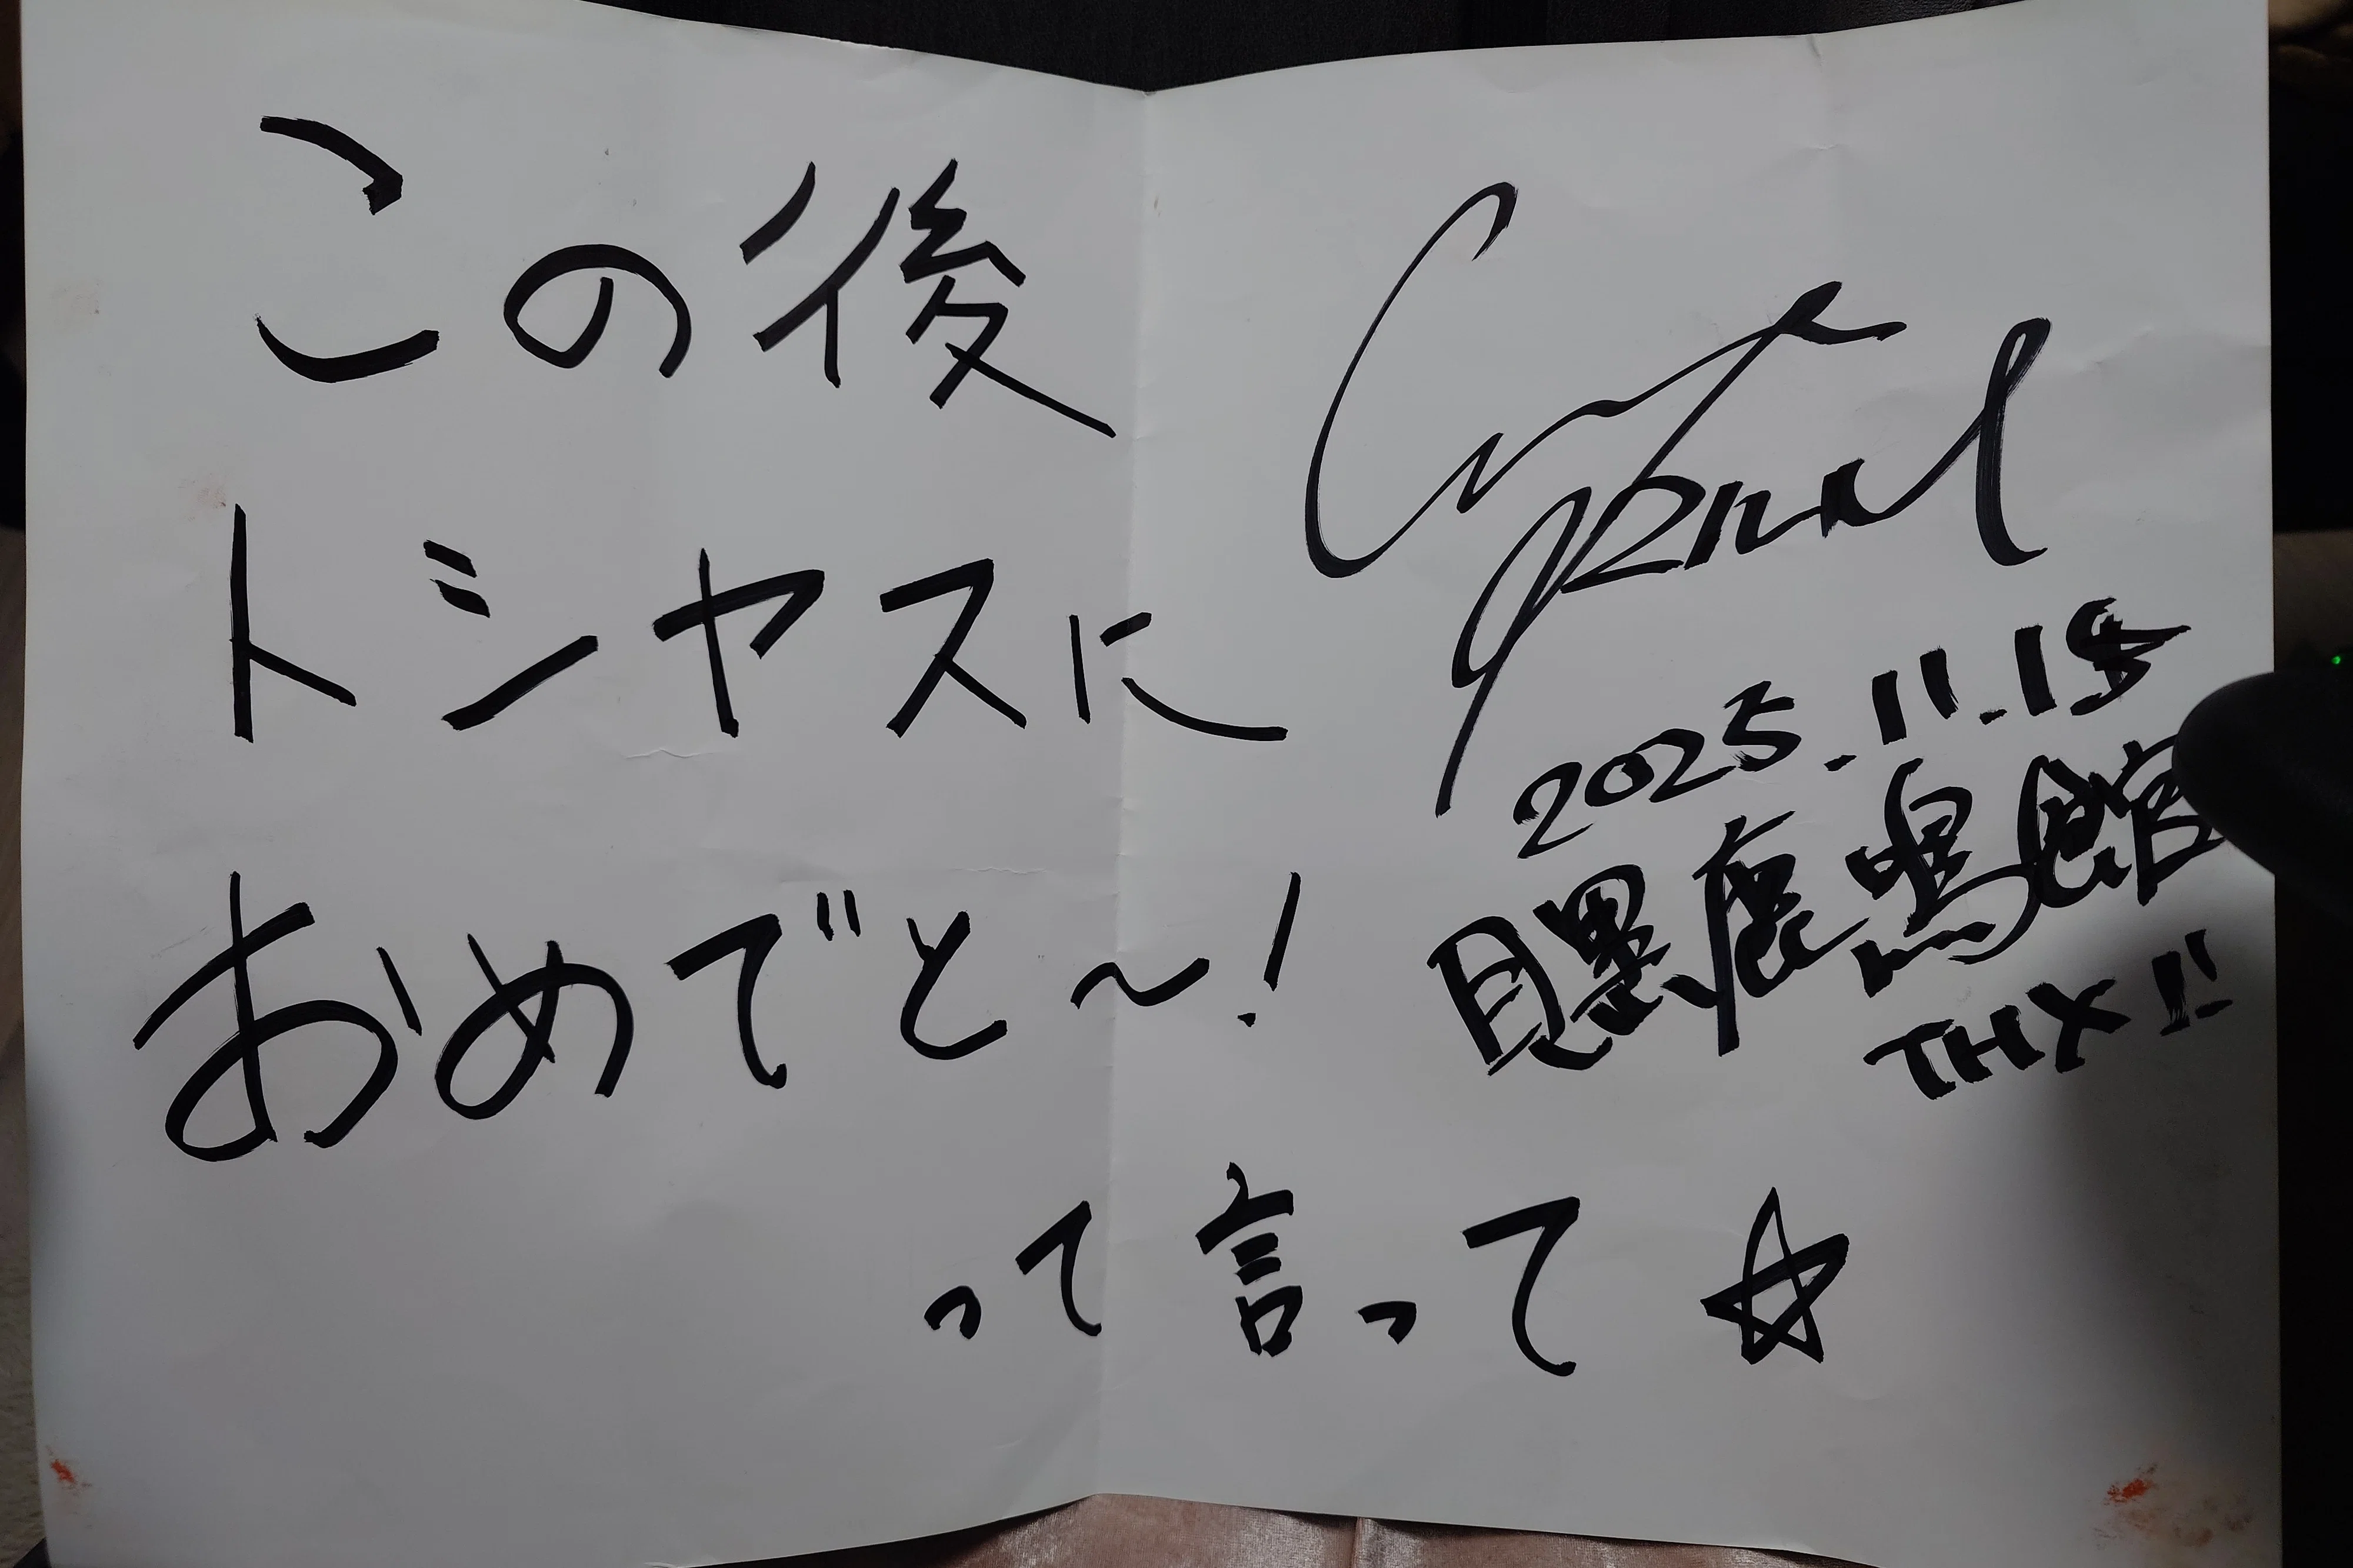 この後
トシヤスに
おめでと～!
って言って☆
2025.11.15
目黒鹿鳴館
THX!!